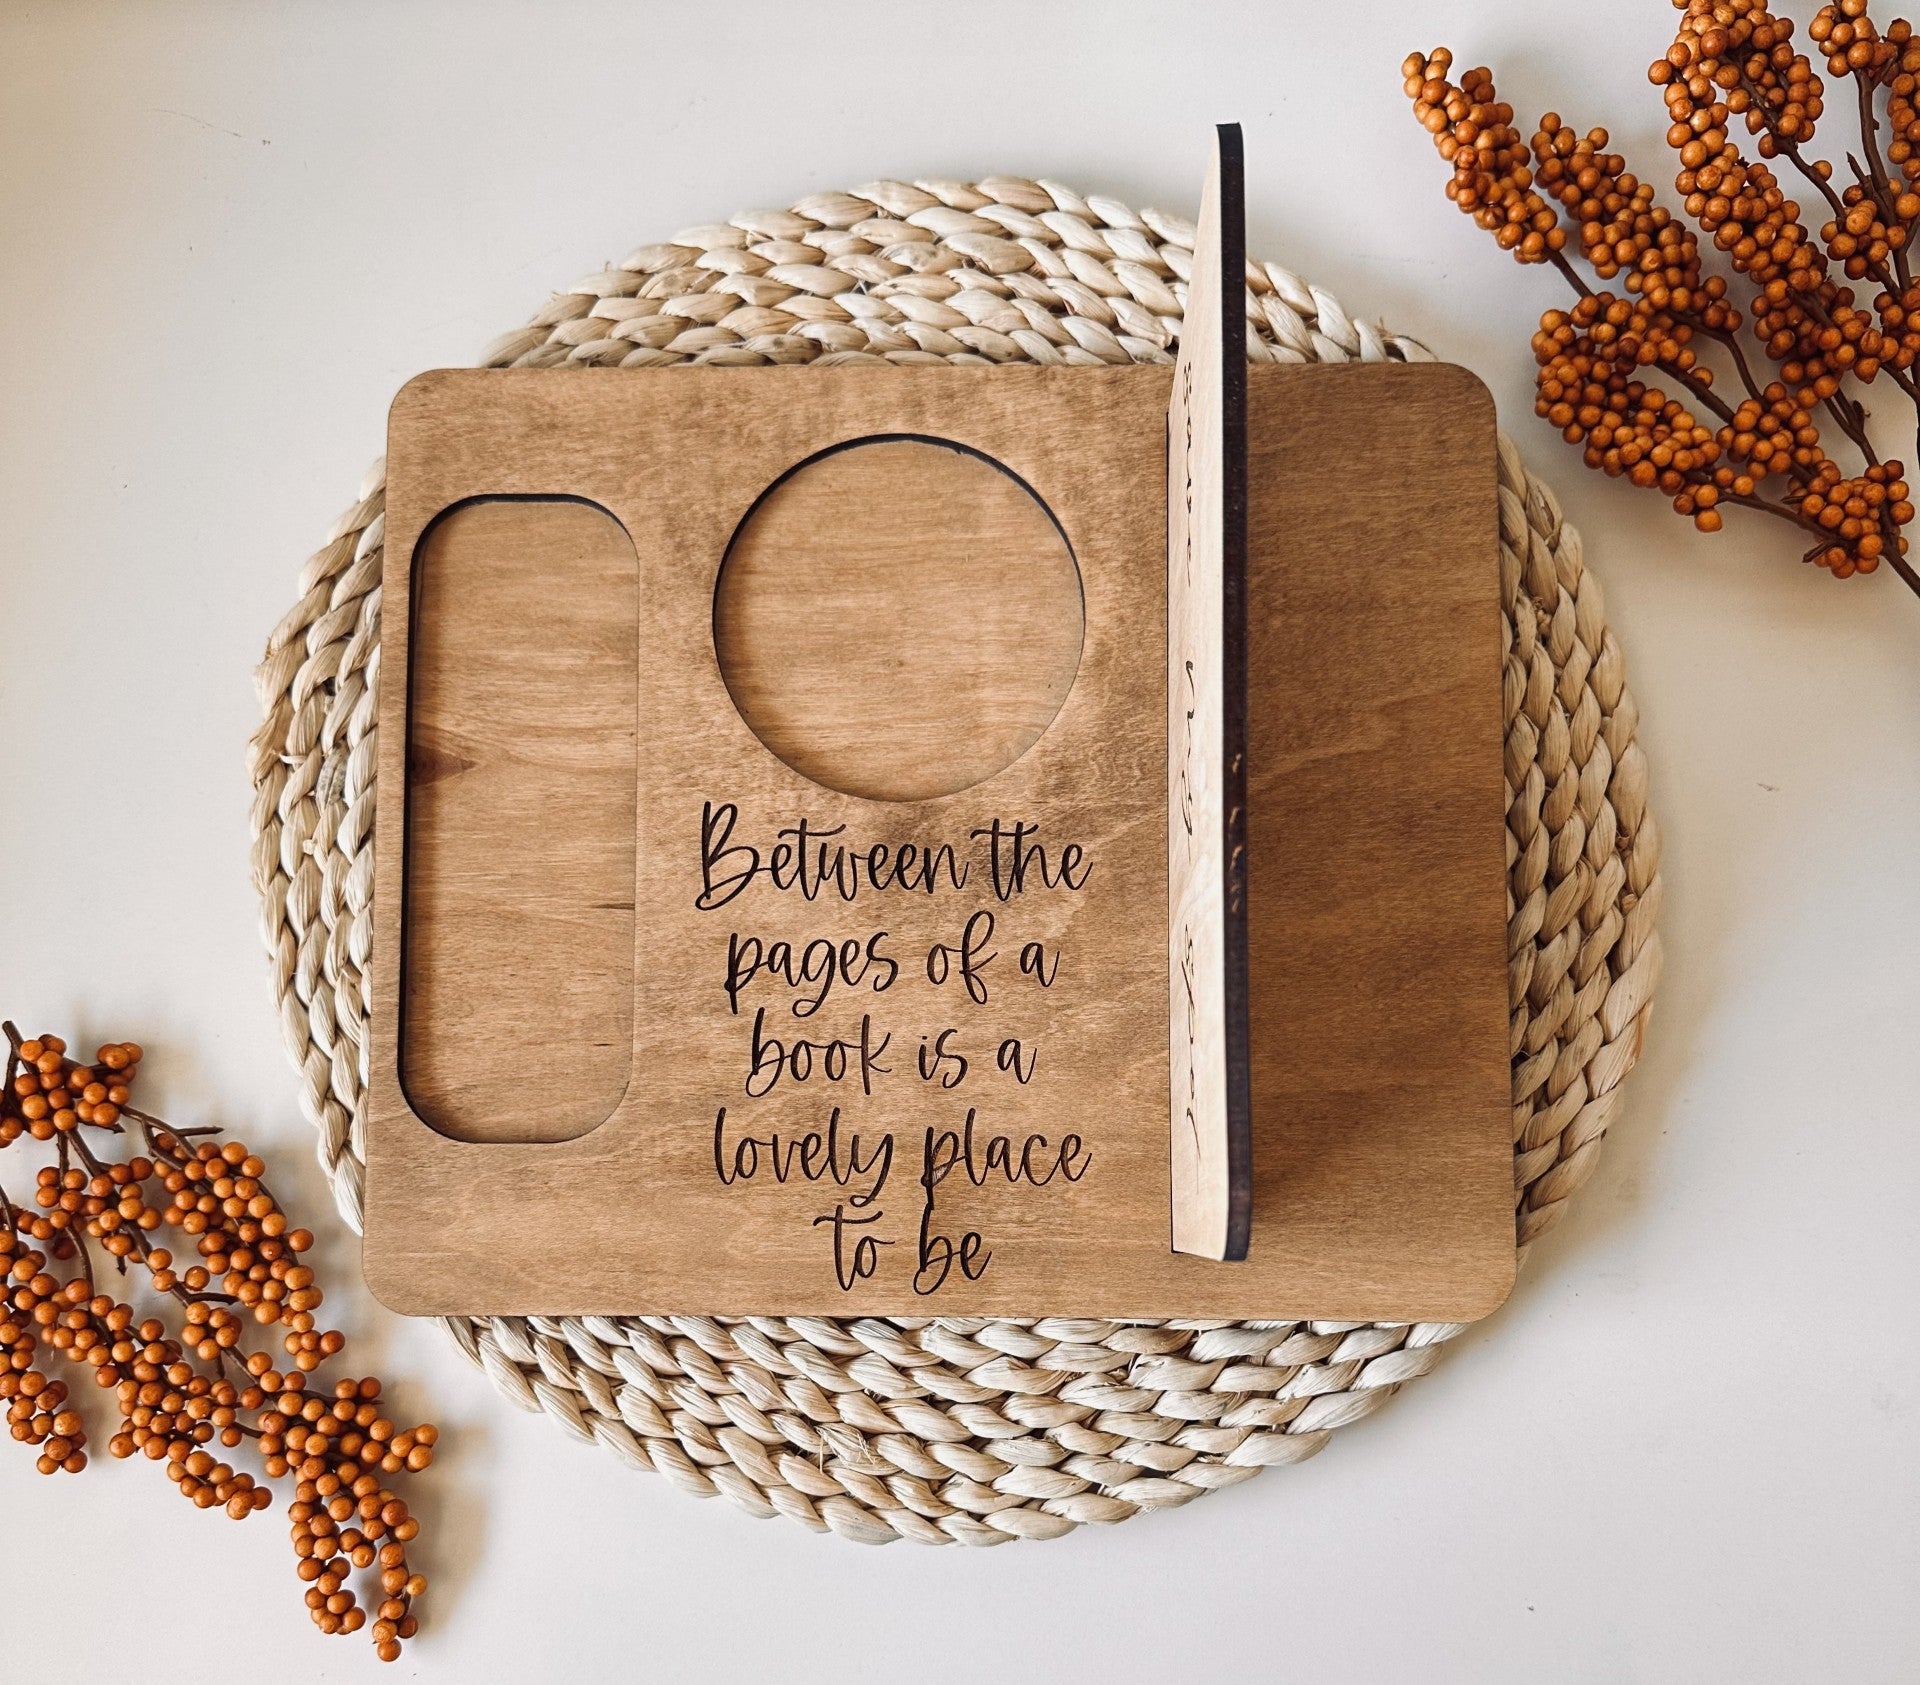 Between the
pages of a
book is a
lovely place
to be
Save my spot